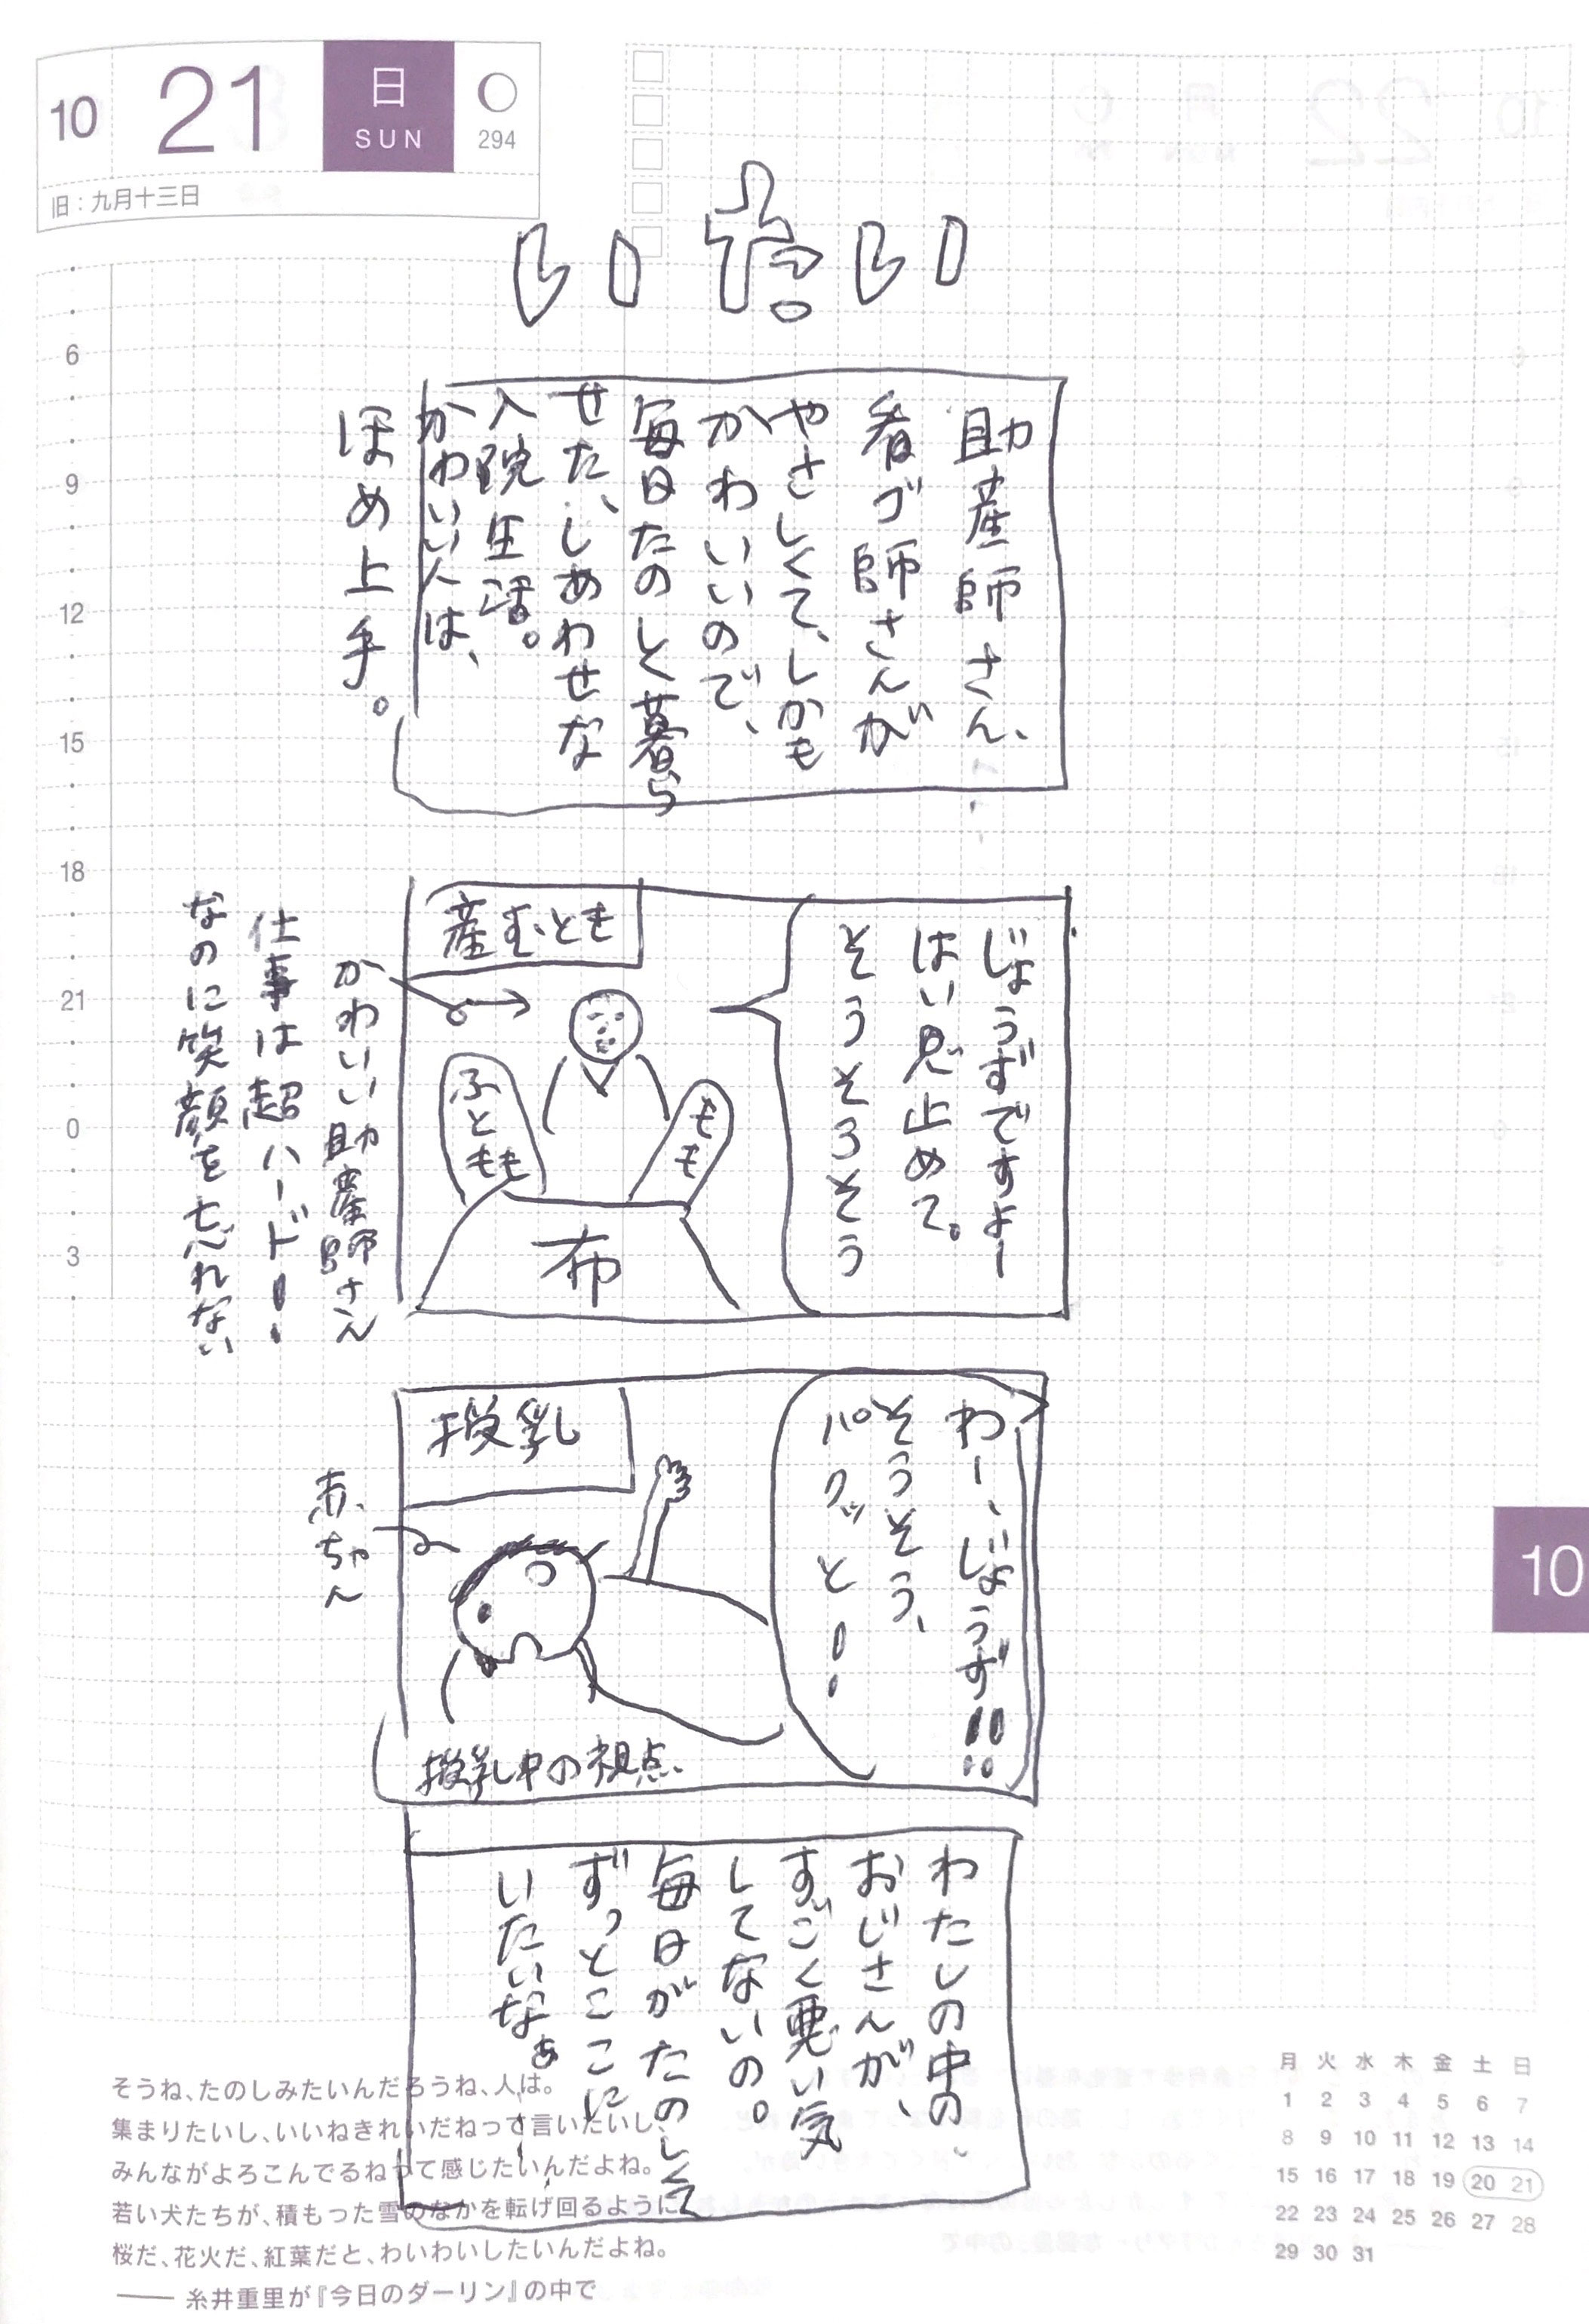 10
21
日
SUN
294
旧：九月十三日
いたいい
助産師さん、
看ゴ師さんが
やさしくて、しかも
かわいいので、
毎日たのしく暮ら
せた、しあわせな
入院生活。
かわいい人は、
ほめ上手。
じょうずですよー
はい息止めて。
そうそうそう
産むとき
ふともも
もも
布
かわいい助産師さん
仕事は超ハード！
なのに笑顔を忘れない
わー、じょうず!!
そうそう、
パクッと！
授乳
赤ちゃん
授乳中の視点
わたしの中の
おじさんが、
すごく悪い気
してないの。
毎日がたのしくて
ずっとここに
いたいなぁ
6
9
12
15
18
21
0
3
10
そうね、たのしみたいんだろうね、人は。
集まりたいし、いいねきれいだねって言いたいし、
みんながよろこんでるねって感じたいんだよね。
若い犬たちが、積もった雪のなかを転げ回るように、
桜だ、花火だ、紅葉だと、わいわいしたいんだよね。
―― 糸井重里が『今日のダーリン』の中で
月 火 水 木 金 土 日
1 2 3 4 5 6 7
8 9 10 11 12 13 14
15 16 17 18 19 20 21
22 23 24 25 26 27 28
29 30 31